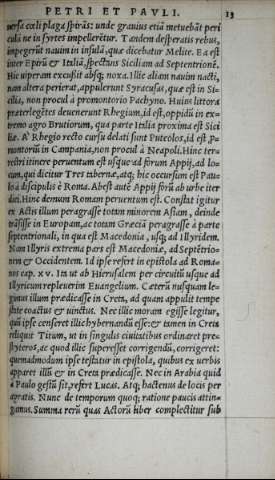 PETRI ET PAVLI. 13
uersa exli plaga spirās: unde grauius etiā metuebāt peri
culi ne in syrtes impelleretur. Tandem desperatis rebus,
impegerūt nauim in insulā, quæ dicebatur Melite. Ea est
inter Epirū & Italiā, spectans Siciliam ad Septentrionē.
Hic uiperam excußit absq; noxa. Illic aliam nauim nacti,
nam altera perierat, appulerunt Syracusas, quæ est in Si-
cilia, non procul a promontorio Pachyno. Huius littora
præterlegētes deuenerunt Rhegium, id est, oppidū in ex-
tremo agro Brutiorum, qua parte Italia proxima est Sici
liæ. A' Rhegio recto cursu delati sunt Puteolos, id est, Pu-
montoriū in Campania, non procul à Neapoli. Hinc ter-
restri itinere peruentum est usque ad forum Appij, ad lo-
cum, qui dicitur Tres tabernæ, atq; hic occursum est Pau-
lo à discipulis è Roma. Abest autē Appij forū ab urbe iter
diei. Hinc demum Romam peruentum est. Constat igitur
ex Actis illum peragrasse totam minorem Asiam, deinde
trāsisse in Europam, ac totam Græciā peragrasse à parte
septentrionali, in qua est Macedonia, usq; ad Illyridem.
Nam Illyris extrema pars est Macedoniæ, ad Septētrio-
nem & Occidentem. Id ipse refert in epistola ad Roma-
nos cap. xv. Ita ut ab Hierusalem per circuitū usque ad
Illyricum repleuerim Euangelium. Cæterū nusquam le-
gimus illum prædicasse in Creta, ad quam appulit tempe
state coactus & uinctus. Nec illic moram egisse legitur,
qui ipse censeret illic hybernandū esse: & tamen in Creta
reliquit Titum, ut in singulis ciuitatibus ordinaret pre-
sbyteros, ac quod illic superesset corrigendū, corrigeret:
quemadmodum ipse testatur in epistola, quibus ex uerbis
apparet illū & in Creta prædicasse. Nec in Arabia quid
a Paulo gestū sit, refert Lucas. Atq; hactenus de locis per
agratis. Nunc de temporum quoq; ratione paucis attin-
gamus. Summa rerū quas Actorū liber complectitur sub